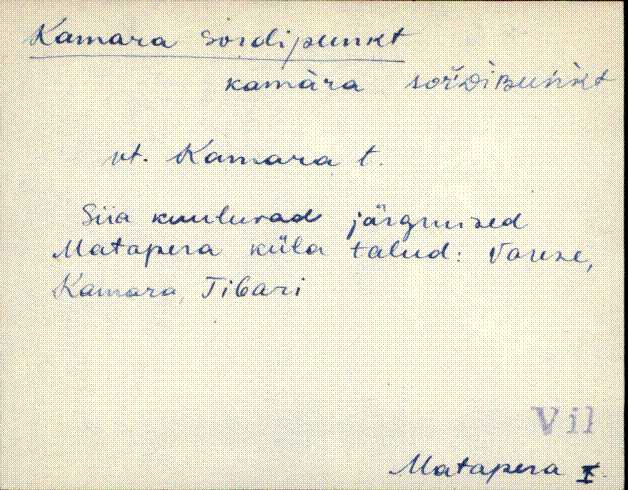 Kamara Sordipunkt
kamàra sořDiBuǹkt
vt. Kamara t.
Siia kuuluvad järgmised
Matapera küla talud: Varese,
Kamara, Tibari
Vil
Matapera I.